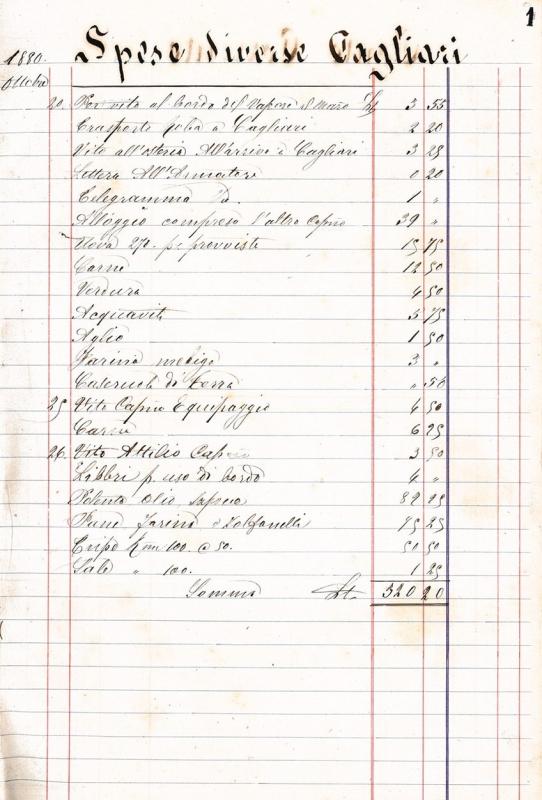 1
Spese diverse Cagliari
1880.
Ottobre
20. Per vito al bordo del Vapore Lt 3 55
Trasporto roba a Cagliari 2 20
Vito all'osteria All'arrivo a Cagliari 3 25
Lettera All'Armatore 0 20
Telegramma Do. 1 "
Alloggio compreso l'altro Capno 39 "
Uova 270. p provviste 15 75
Carne 12 50
Verdura 4 50
Acquavita 5 75
Aglio 1 50
Farina 3 "
di terra "
25 Vito Capno Equipaggio 4 50
Carne 6 75
26. Vito Attilio 3 50
Libbri p. uso di bordo 4 "
Polenta Olio
Pane Farina e Zolfanelli 75 25
100. @ 50. 50 50
Sale " 100. 1 25
Somma Lt. 320 20